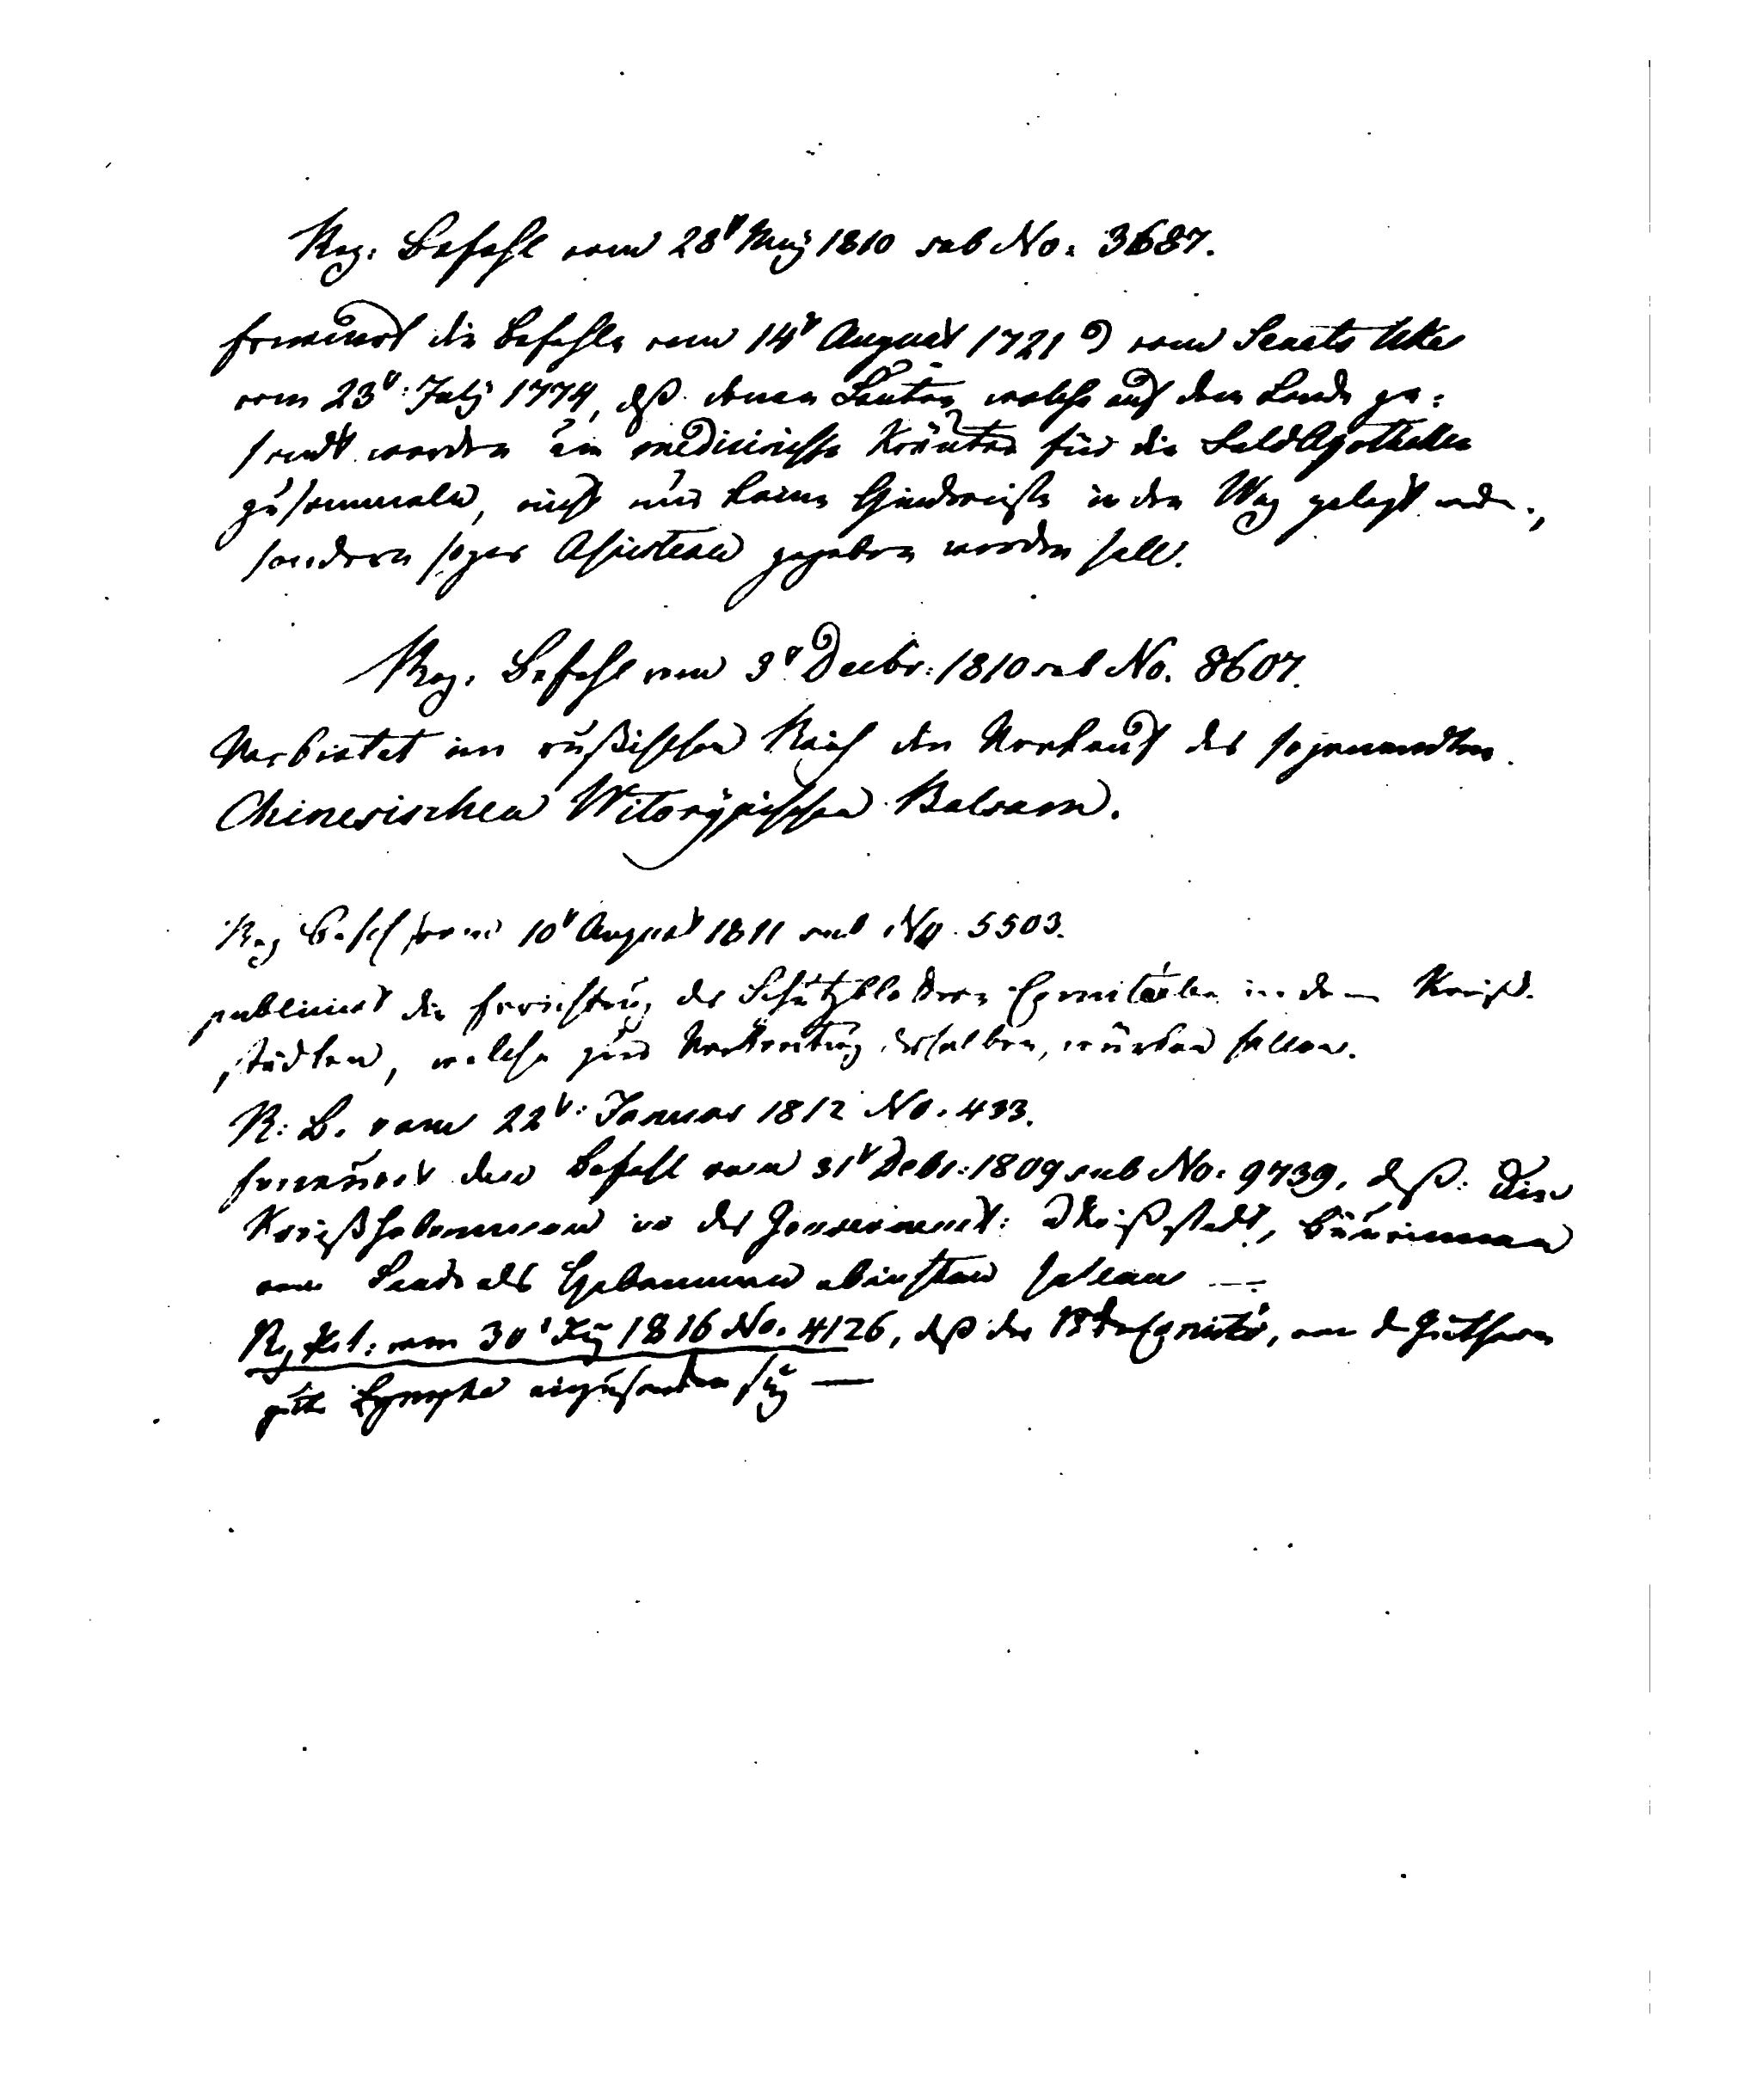 Reg. Befehl vom 28t Maÿ 1810 sub No. 3687.
Erneuert die Befehle vom 14t August 1721 vom Senats Ukas
vom 23t: Julÿ 1774, dß denen Leuten welche auf dem Lande ge=
sendt werden um medicinische Kräuter für die FeldApotheken
zu sammeln, nicht nur keine Hindernisse in den Weg gelegt,
sondern sogar Assistence gegeben werden soll.
Reg. Befehl vom 3t Decbr: 1810 sub No. 8607.
Verbietet im rußischen Reich den Verkauf des sogenandten
Chinesischen Balsam.
Reg Befehl vom 10t August 1811 sub No. 5503.
publicirt die Errichtung der Schutzblattern Comitäten in den Kreis-
städten, welche zur Verbreitung derselben, würken sollen.
R: B. vom 22t: Januar 1812 No. 433.
Erneuert den Befehl vom 31t Debr: 1809 sub No. 9739, dß: die
Kreißhebammen in der Gouvernemt: Kreißstadt, Bäurinnen
vom Lande als Hebammen sollen —
vom 30t 1816 No. 4126, dß der
gute Lymphe einzusenden seÿ —